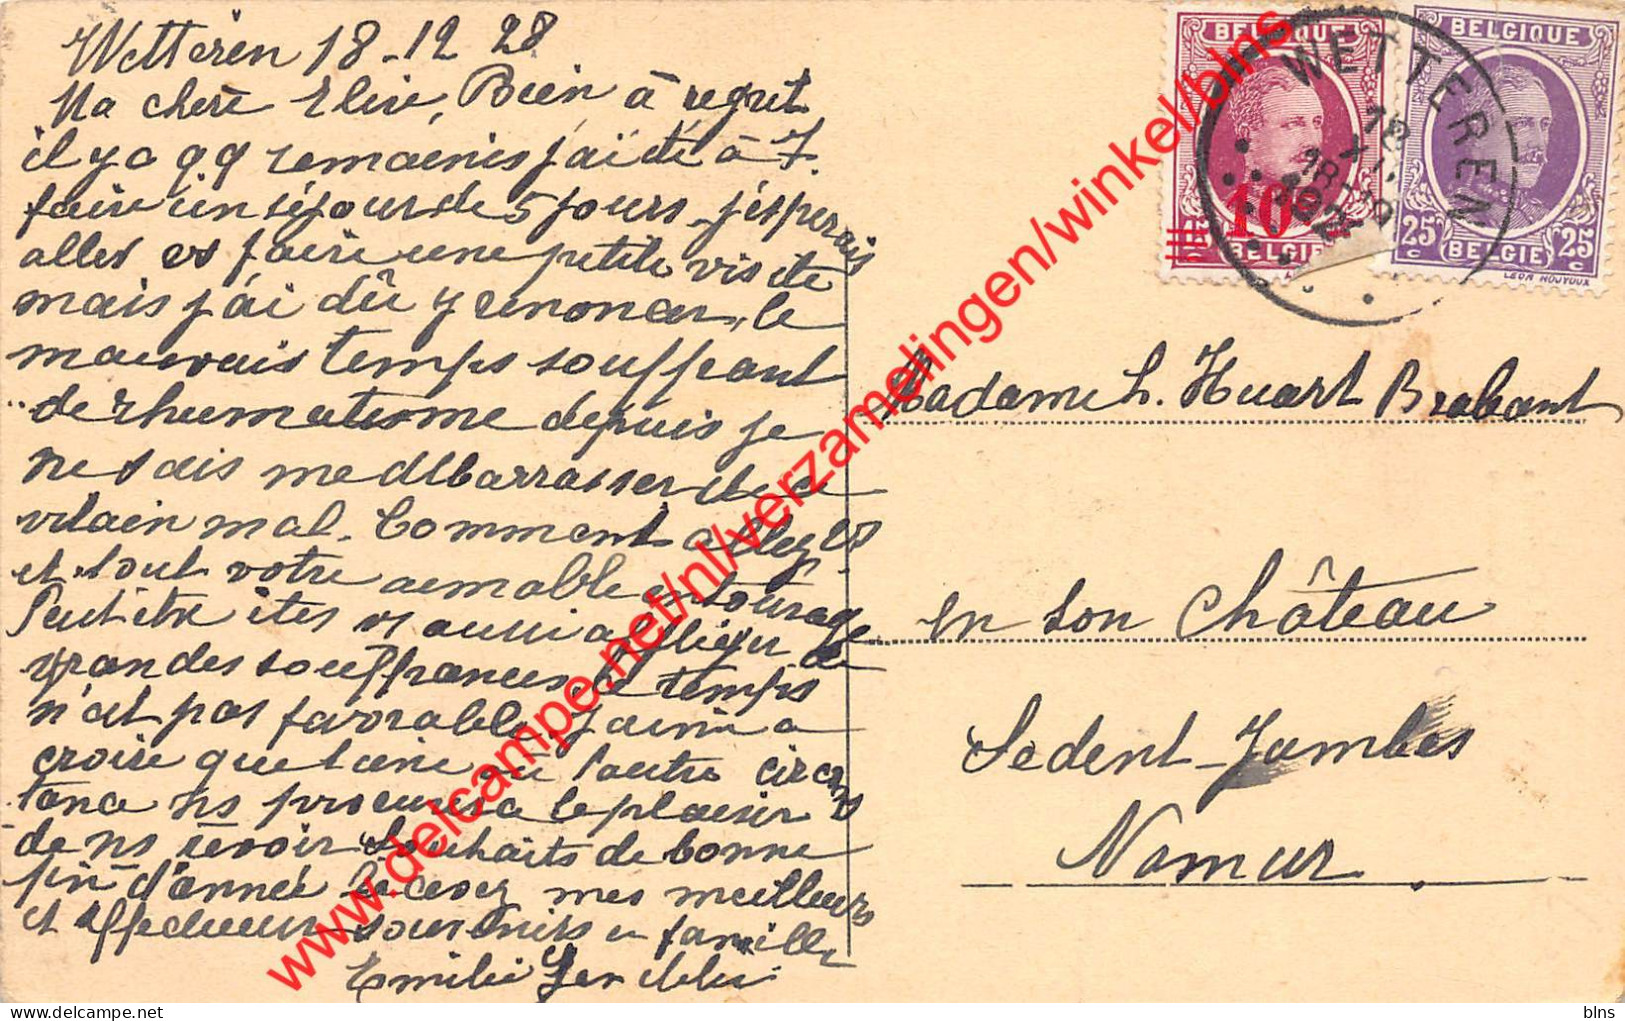 Wetteren 18-12 28
Ma chère Elise, Bien à regret
il y a qq semaines j'ai été à
faire un séjour de 5 jours, j'espérais
aller vs faire une petite visite
mais j'ai dû y renoncer, le
mauvais temps souffrant
de rhumatisme depuis je
ne sais me débarrasser de ce
vilain mal. Comment allez vs
et tout votre aimable entourage.
Peut être êtes vs aussi affligée de
grandes souffrances, le temps
n'est pas favorable. J'aime à
croire que l'une ou l'autre circons
tance ns procurera le plaisir
de ns revoir Souhaits de bonne
fin d'année Recevez mes meilleurs
et affectueux souvenirs en famille
Emilie
BELGIQUE
10c
BELGIE
BELGIQUE
25c 25c
BELGIE
LEON HOUYOUX
WETTEREN
18
XII
18-19
192
Madame L. Huart Brabant
en son Château
Sedent-Jambes
Namur
www.delcampe.net/nl/verzamelingen/winkel/blns
blns